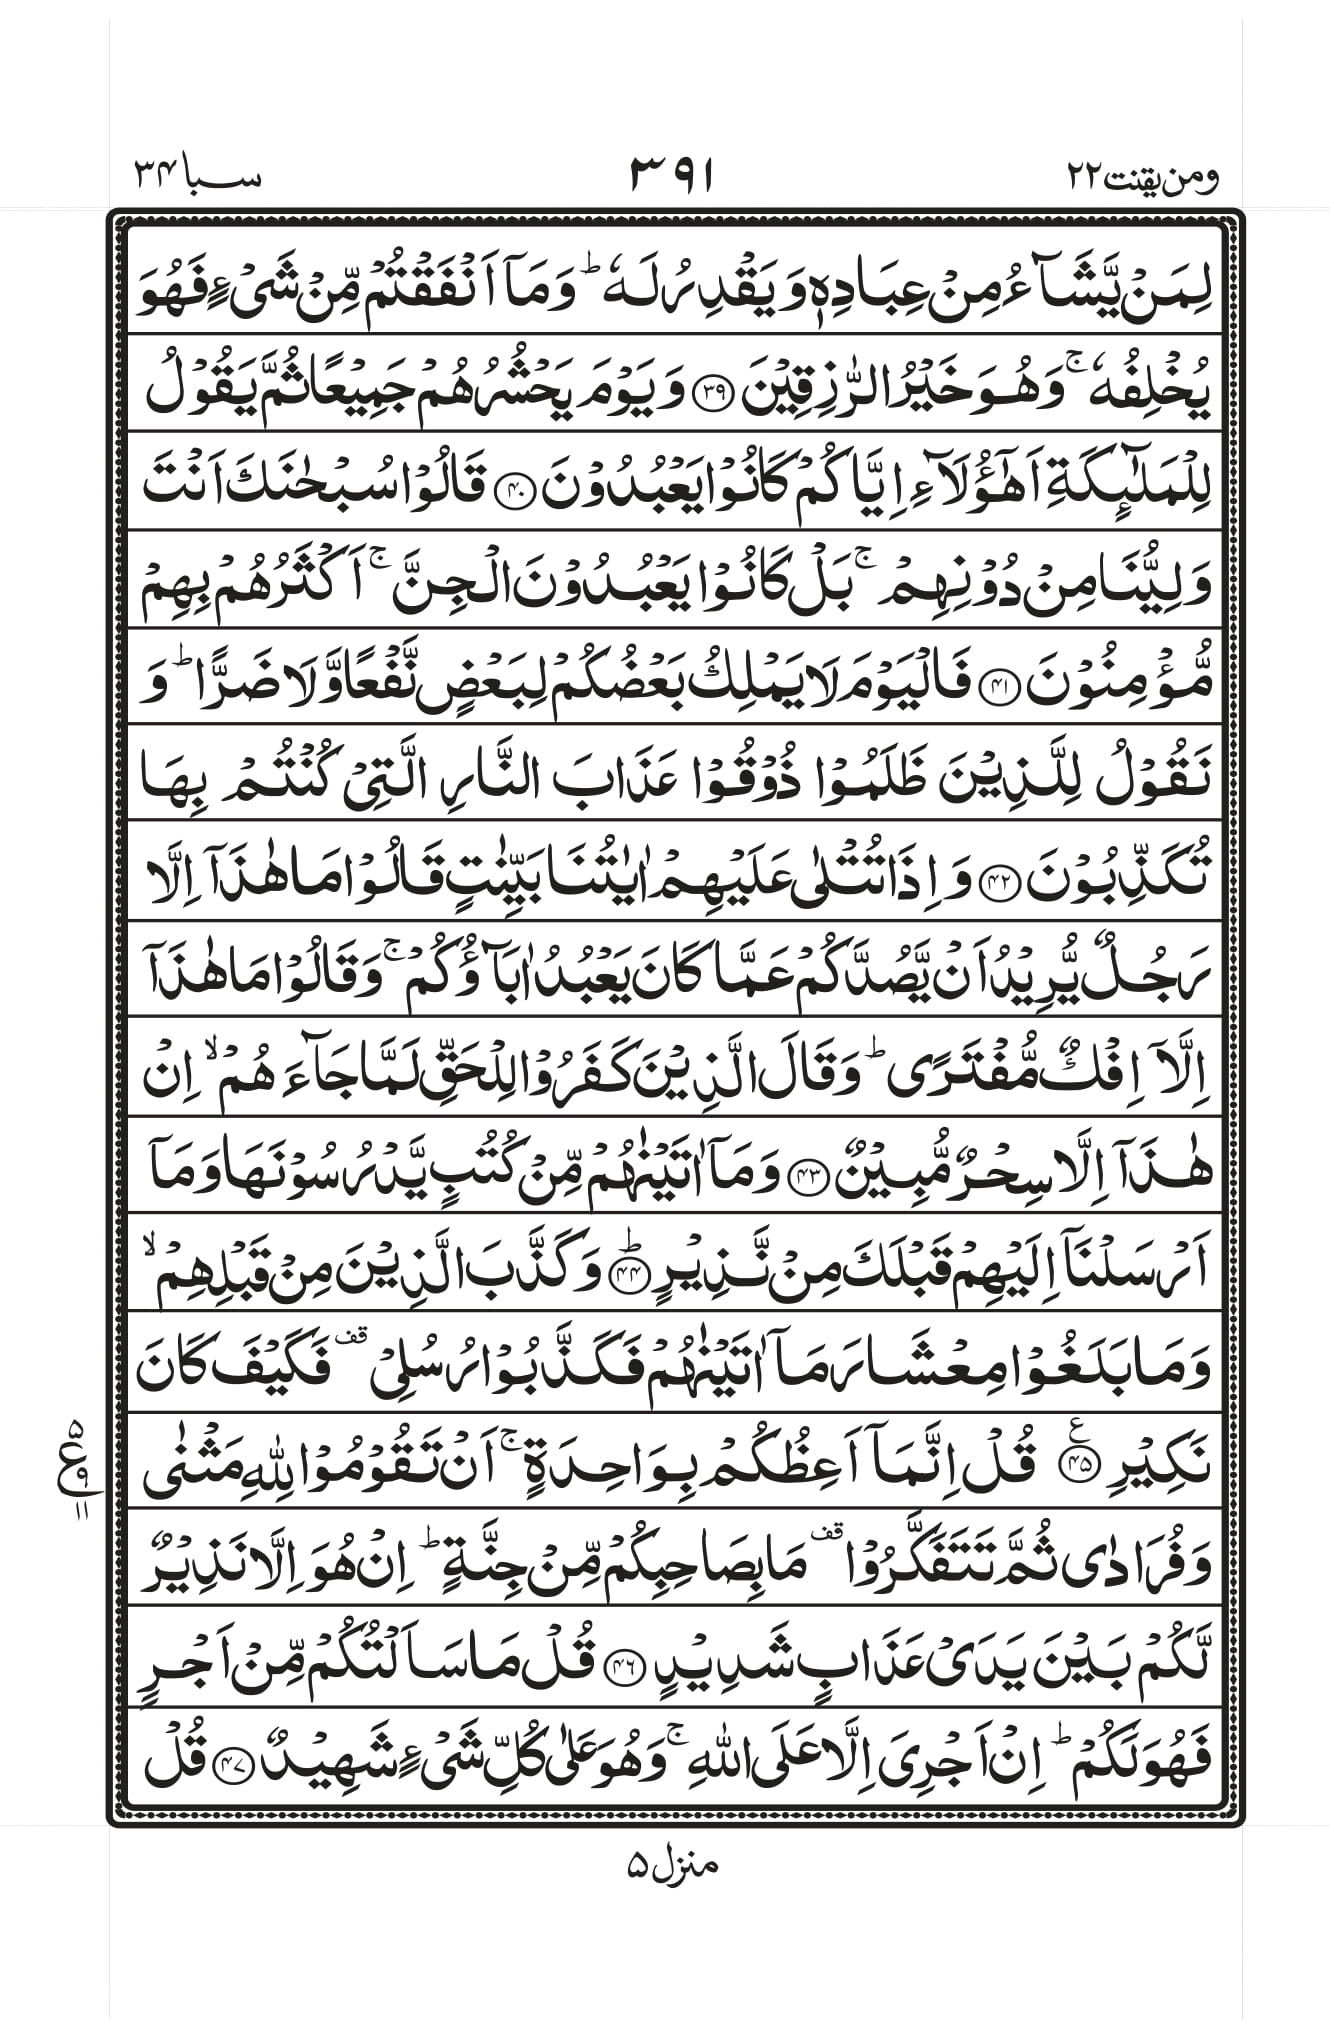 ومن یقنت ۲۲ ۳۹۱ سبا ۳۴
لِمَنْ يَّشَآءُ مِنْ عِبَادِهٖ وَيَقْدِرُ لَهٗ ؕ وَمَاۤ اَنْفَقْتُمْ مِّنْ شَیْءٍ فَهُوَ
يُخْلِفُهٗ ۚ وَهُوَ خَيْرُ الرّٰزِقِيْنَ ﴿۳۹﴾ وَيَوْمَ يَحْشُرُهُمْ جَمِيْعًا ثُمَّ يَقُوْلُ
لِلْمَلٰٓئِكَةِ اَهٰٓؤُلَآءِ اِيَّاكُمْ كَانُوْا يَعْبُدُوْنَ ﴿۴۰﴾ قَالُوْا سُبْحٰنَكَ اَنْتَ
وَلِيُّنَا مِنْ دُوْنِهِمْ ۚ بَلْ كَانُوْا يَعْبُدُوْنَ الْجِنَّ ۚ اَكْثَرُهُمْ بِهِمْ
مُّؤْمِنُوْنَ ﴿۴۱﴾ فَالْيَوْمَ لَا يَمْلِكُ بَعْضُكُمْ لِبَعْضٍ نَّفْعًا وَّلَا ضَرًّا ؕ وَ
نَقُوْلُ لِلَّذِيْنَ ظَلَمُوْا ذُوْقُوْا عَذَابَ النَّارِ الَّتِیْ كُنْتُمْ بِهَا
تُكَذِّبُوْنَ ﴿۴۲﴾ وَاِذَا تُتْلٰی عَلَيْهِمْ اٰيٰتُنَا بَيِّنٰتٍ قَالُوْا مَا هٰذَاۤ اِلَّا
رَجُلٌ يُّرِيْدُ اَنْ يَّصُدَّكُمْ عَمَّا كَانَ يَعْبُدُ اٰبَآؤُكُمْ ۚ وَقَالُوْا مَا هٰذَاۤ
اِلَّاۤ اِفْكٌ مُّفْتَرًی ؕ وَقَالَ الَّذِيْنَ كَفَرُوْا لِلْحَقِّ لَمَّا جَآءَهُمْ ۙ اِنْ
هٰذَاۤ اِلَّا سِحْرٌ مُّبِيْنٌ ﴿۴۳﴾ وَمَاۤ اٰتَيْنٰهُمْ مِّنْ كُتُبٍ يَّدْرُسُوْنَهَا وَمَاۤ
اَرْسَلْنَاۤ اِلَيْهِمْ قَبْلَكَ مِنْ نَّذِيْرٍ ﴿۴۴﴾ؕ وَكَذَّبَ الَّذِيْنَ مِنْ قَبْلِهِمْ ۙ
وَمَا بَلَغُوْا مِعْشَارَ مَاۤ اٰتَيْنٰهُمْ فَكَذَّبُوْا رُسُلِیْ قف فَكَيْفَ كَانَ
نَكِيْرِ ﴿۴۵﴾ ع قُلْ اِنَّمَاۤ اَعِظُكُمْ بِوَاحِدَةٍ ۚ اَنْ تَقُوْمُوْا لِلّٰهِ مَثْنٰی
۵ ع ۹ ۱۱
وَفُرَادٰی ثُمَّ تَتَفَكَّرُوْا قف مَا بِصَاحِبِكُمْ مِّنْ جِنَّةٍ ؕ اِنْ هُوَ اِلَّا نَذِيْرٌ
لَّكُمْ بَيْنَ يَدَیْ عَذَابٍ شَدِيْدٍ ﴿۴۶﴾ قُلْ مَا سَاَلْتُكُمْ مِّنْ اَجْرٍ
فَهُوَ لَكُمْ ؕ اِنْ اَجْرِیَ اِلَّا عَلَی اللّٰهِ ۚ وَهُوَ عَلٰی كُلِّ شَیْءٍ شَهِيْدٌ ﴿۴۷﴾ قُلْ
منزل ۵